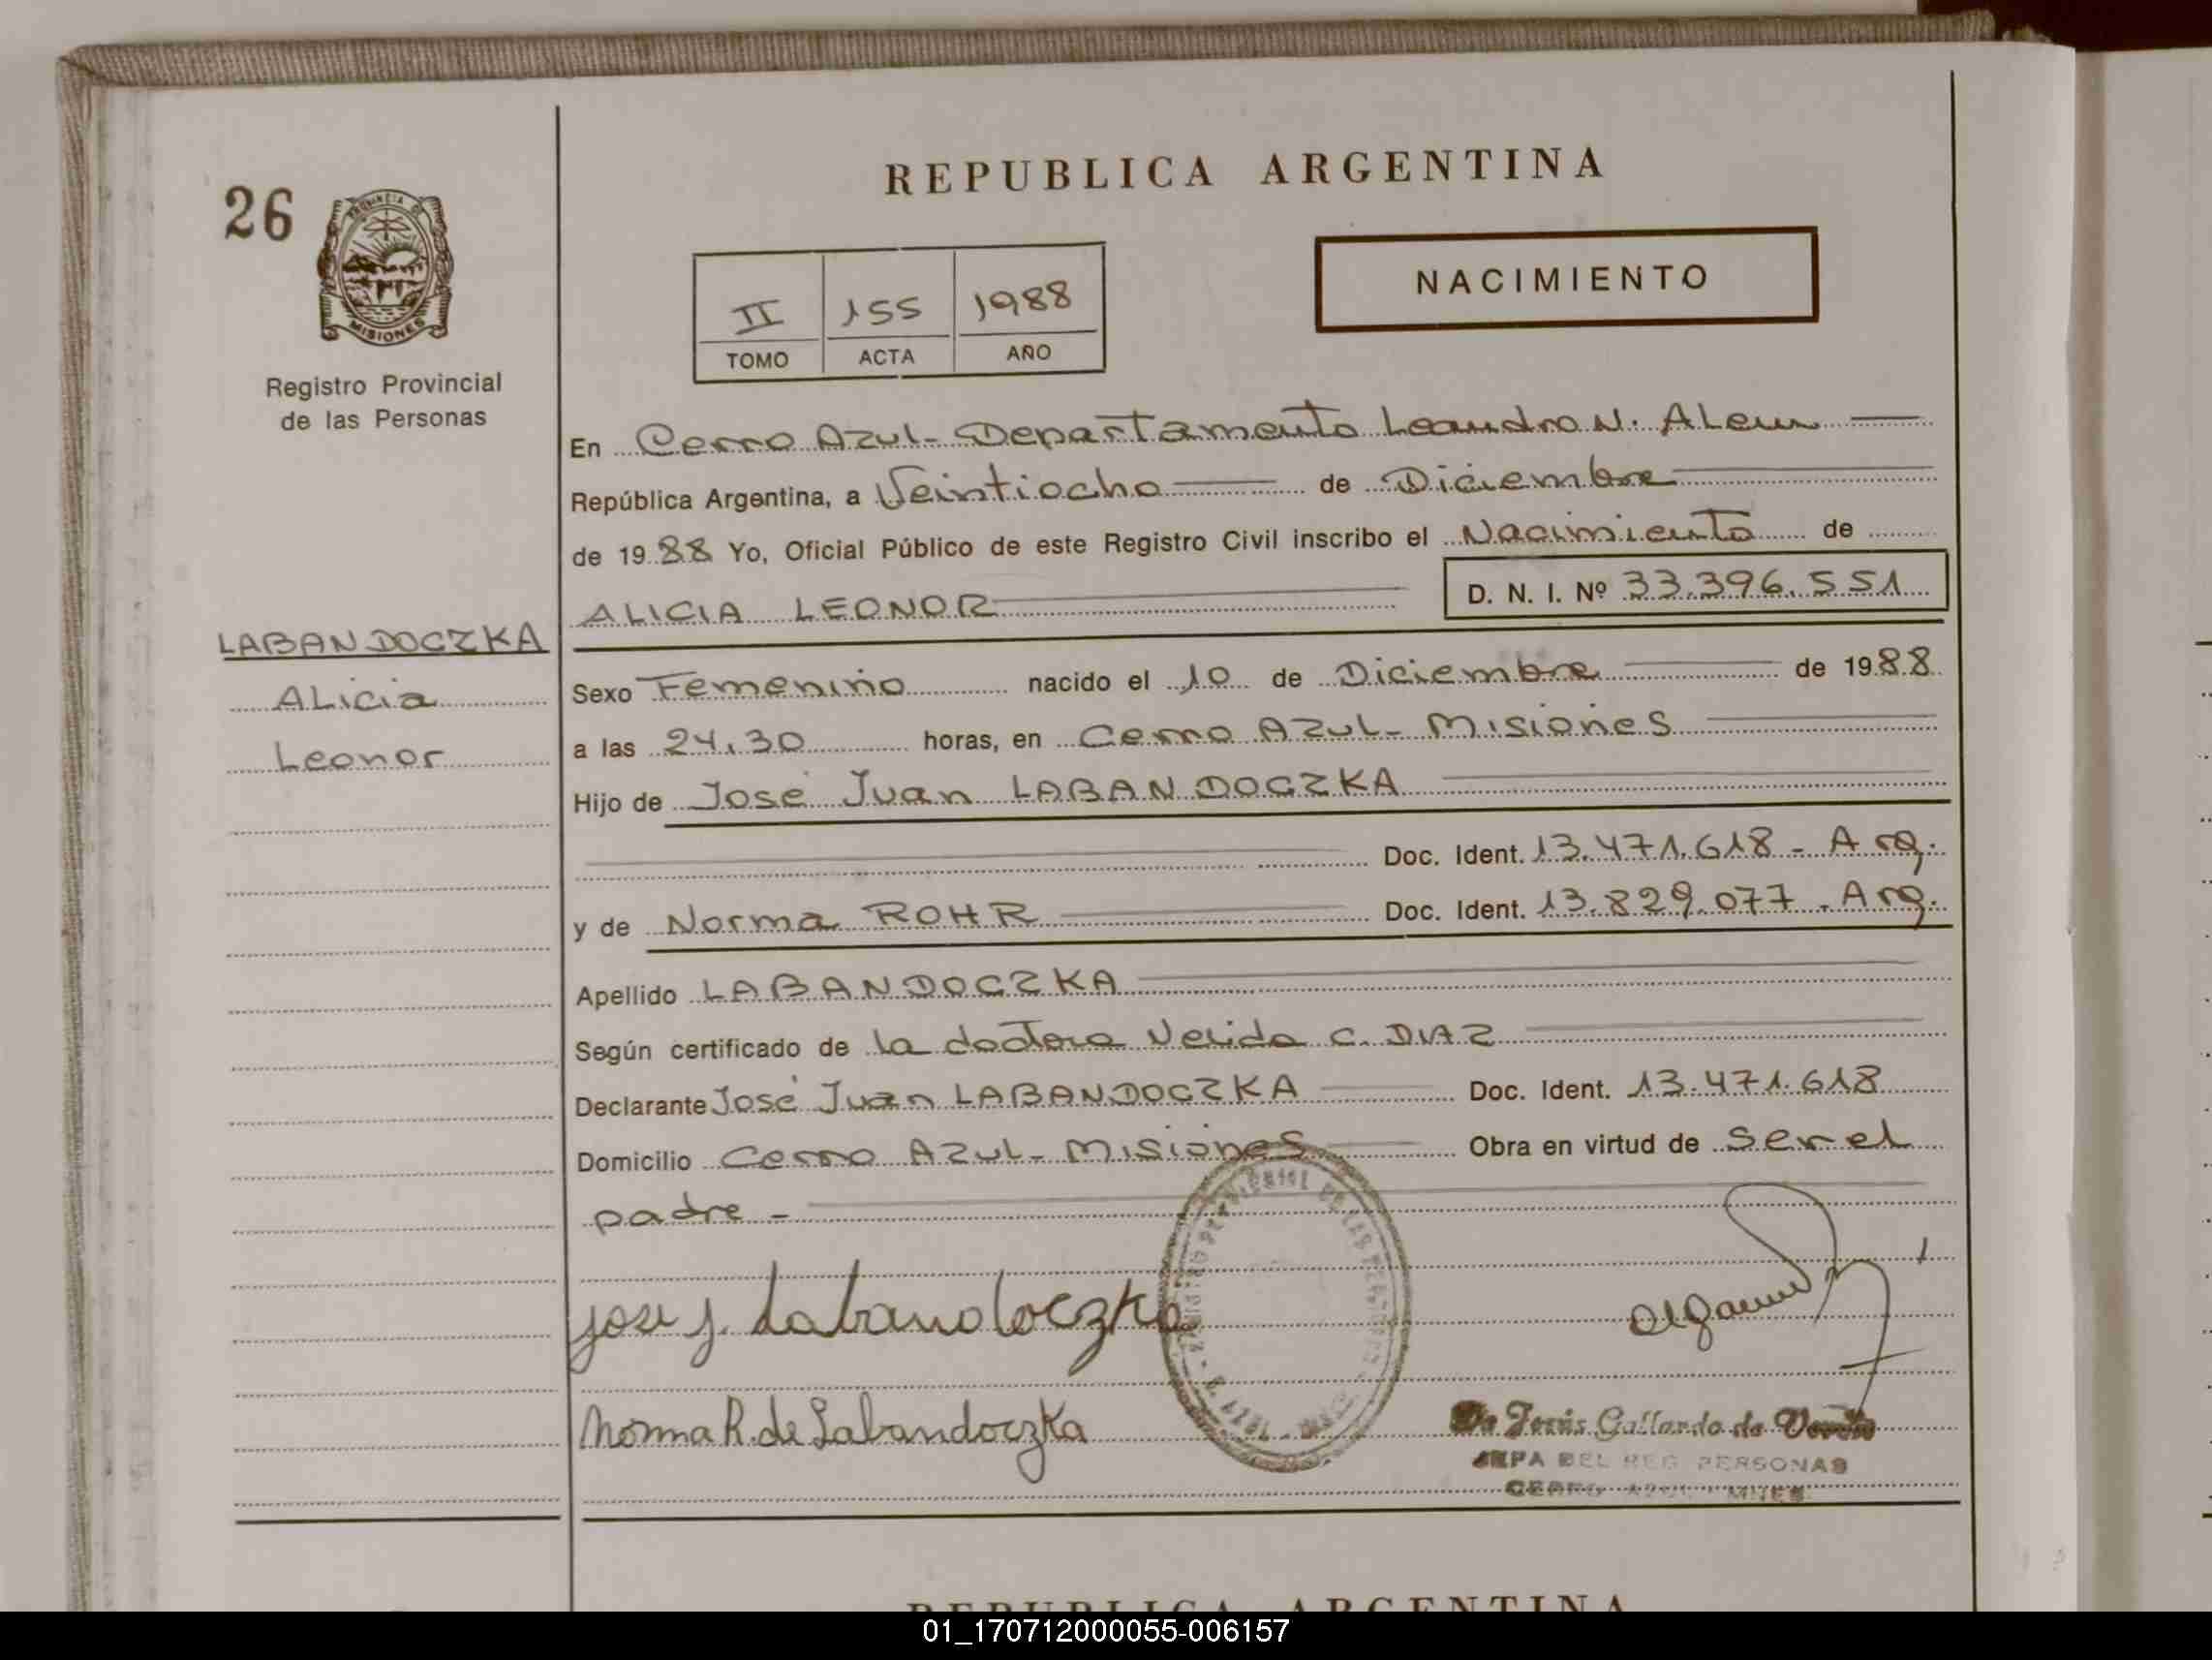 REPUBLICA ARGENTINA
26
PROVINCIA DE
MISIONES
NACIMIENTO
II 155 1988
TOMO ACTA AÑO
Registro Provincial
de las Personas
En Cerro Azul - Departamento Leandro N. Alem
República Argentina, a Veintiocho de Diciembre
de 1988 Yo, Oficial Público de este Registro Civil inscribo el Nacimiento de
ALICIA LEONOR D. N. I. Nº 33.396.551
LABANDOCZKA
Alicia
Leonor
Sexo Femenino nacido el 10 de Diciembre de 1988
a las 24,30 horas, en Cerro Azul - Misiones
Hijo de José Juan LABANDOCZKA
Doc. Ident. 13.471.618 - Arg.
y de Norma ROHR Doc. Ident. 13.829.077 - Arg.
Apellido LABANDOCZKA
Según certificado de la doctora Nelida C. DIAZ
Declarante José Juan LABANDOCZKA Doc. Ident. 13.471.618
Domicilio Cerro Azul - Misiones Obra en virtud de ser el
padre -
jose j. Labandoczka
Norma R. de Labandoczka
Jesús Gallardo de
JEFA DEL REG PERSONAS
CERRO AZUL MNES
REPUBLICA ARGENTINA
01_170712000055-006157